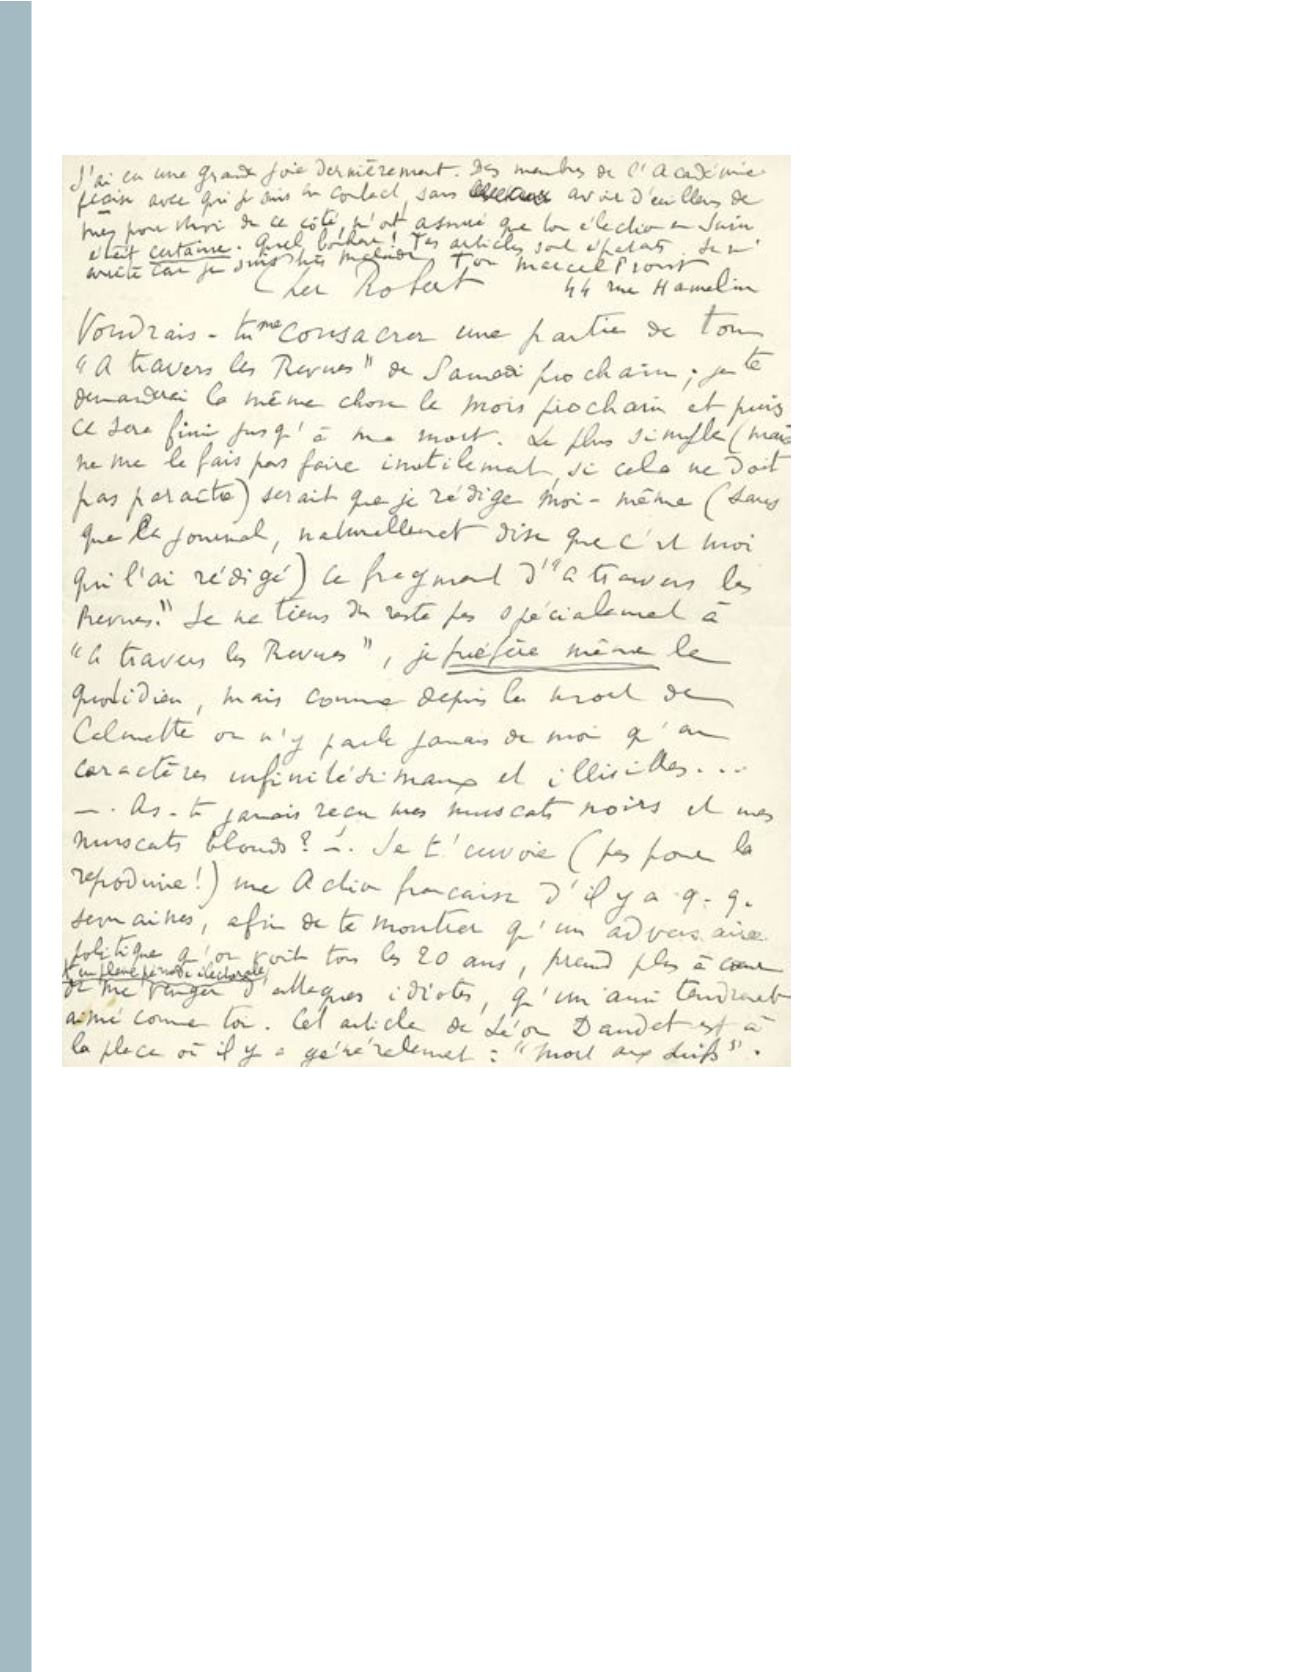 J'ai eu une grande joie dernièrement. Des membres de l'Académie
fçaise avec qui je suis en contact, sans avoir d'ailleurs de
vues pour moi de ce côté, m'ont assuré que ton élection en Juin
était certaine. Quel bonheur ! Tes articles sont épatants. Je m'
arrête car je suis très malade, Ton Marcel Proust
Cher Robert 44 rue Hamelin
Voudrais-tu me consacrer une partie de ton
"A travers les Revues" de Samedi prochain ; je te
demanderai la même chose le mois prochain et puis
ce sera fini jusqu'à ma mort. Le plus simple (mais
ne me le fais pas faire inutilement, si cela ne doit
pas paraître) serait que je rédige moi-même (sans
que le journal, naturellement dise que c'est moi
qui l'ai rédigé) ce fragment d'"A travers les
Revues." Je ne tiens du reste pas spécialement à
"A travers les Revues", je préfère même le
quotidien, mais comme depuis la mort de
Calmette on n'y parle jamais de moi qu'en
caractères infinitésimaux et illisibles...
—. As-tu jamais reçu mes muscats noirs et mes
muscats blonds ? —. Je t'envoie (pas pour la
reproduire !) une Action française d'il y a q. q.
semaines, afin de te montrer qu'un adversaire
politique qu'on voit tous les 20 ans, prend plus à cœur
et en pleine période électorale,
de me venger d'attaques idiotes, qu'un ami tendrement
aimé comme toi. Cet article de Léon Daudet est à
la place où il y a généralement : "Mort aux Juifs".